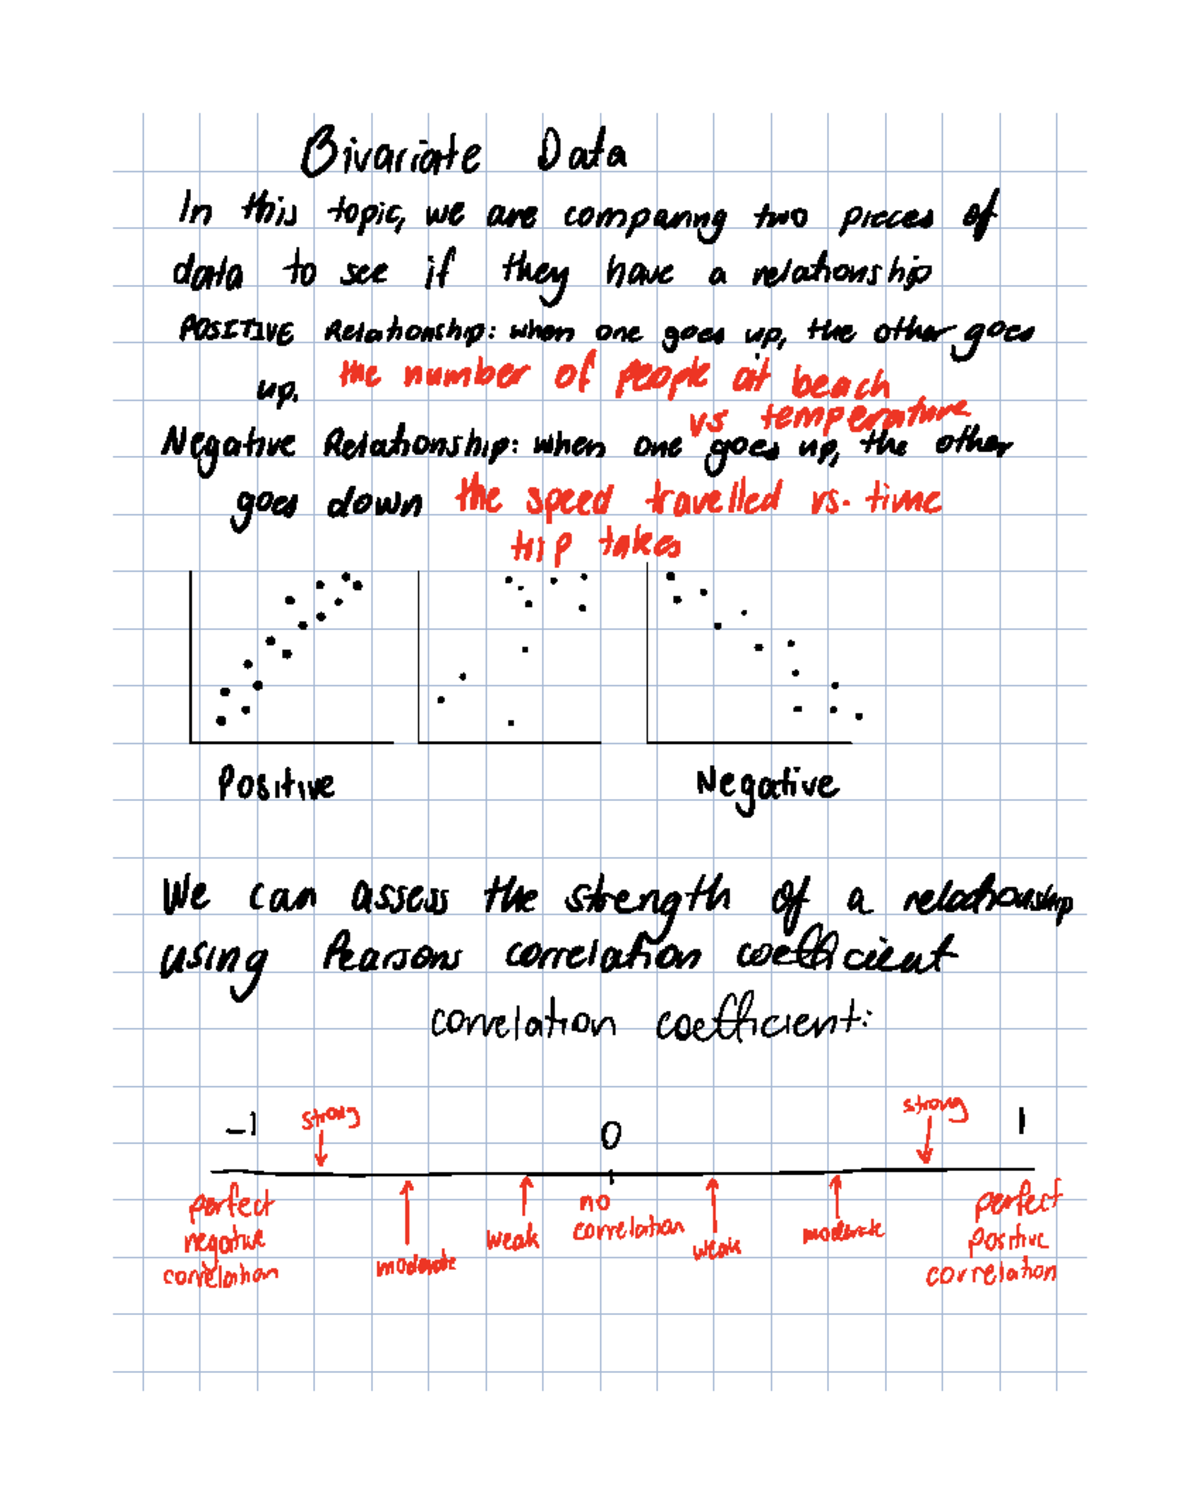 Bivariate Data
In this topic, we are comparing two pieces of
data to see if they have a relationship
POSITIVE Relationship: when one goes up, the other goes
up. the number of people at beach
vs temperature
Negative Relationship: when one goes up, the other
goes down the speed travelled vs. time
trip takes
Positive Negative
We can assess the strength of a relationship
using Pearsons correlation coefficient
correlation coefficient:
-1 strong 0 strong 1
perfect negative correlation
moderate
weak
no correlation
weak
moderate
perfect positive correlation